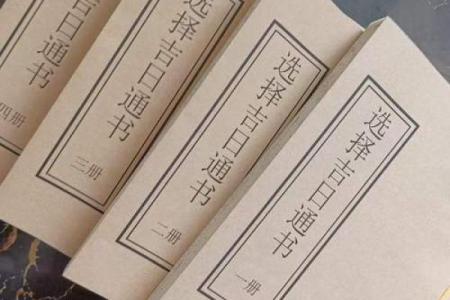 选择吉日通书
一册
选择吉日通书
二册
选择吉日通书
三册
四册